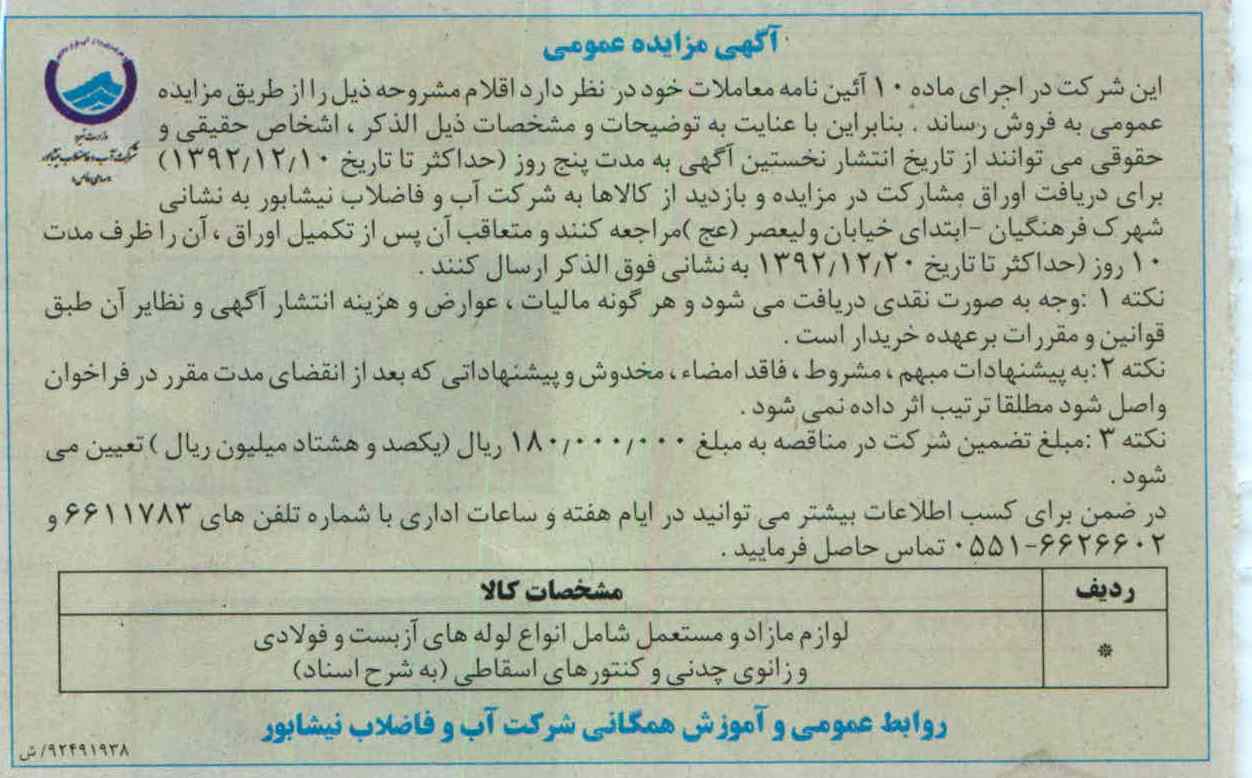 آگهی مزایده عمومی
این شرکت در اجرای ماده ۱۰ آئین نامه معاملات خود در نظر دارد اقلام مشروحه ذیل را از طریق مزایده
عمومی به فروش رساند . بنابراین با عنایت به توضیحات و مشخصات ذیل الذکر ، اشخاص حقیقی و
حقوقی می توانند از تاریخ انتشار نخستین آگهی به مدت پنج روز (حداکثر تا تاریخ ۱۳۹۲/۱۲/۱۰)
برای دریافت اوراق مشارکت در مزایده و بازدید از کالاها به شرکت آب و فاضلاب نیشابور به نشانی
شهرک فرهنگیان -ابتدای خیابان ولیعصر (عج )مراجعه کنند و متعاقب آن پس از تکمیل اوراق ، آن را ظرف مدت
۱۰ روز (حداکثر تا تاریخ ۱۳۹۲/۱۲/۲۰ به نشانی فوق الذکر ارسال کنند .
نکته ۱ :وجه به صورت نقدی دریافت می شود و هر گونه مالیات ، عوارض و هزینه انتشار آگهی و نظایر آن طبق
قوانین و مقررات برعهده خریدار است .
نکته ۲ :به پیشنهادات مبهم ، مشروط ، فاقد امضاء ، مخدوش و پیشنهاداتی که بعد از انقضای مدت مقرر در فراخوان
واصل شود مطلقا ترتیب اثر داده نمی شود .
نکته ۳ :مبلغ تضمین شرکت در مناقصه به مبلغ ۱۸۰/۰۰۰/۰۰۰ ریال (یکصد و هشتاد میلیون ریال ) تعیین می
شود .
در ضمن برای کسب اطلاعات بیشتر می توانید در ایام هفته و ساعات اداری با شماره تلفن های ۶۶۱۱۷۸۳ و
۰۵۵۱-۶۶۲۶۶۰۲ تماس حاصل فرمایید .
ردیف مشخصات کالا
لوازم مازاد و مستعمل شامل انواع لوله های آزبست و فولادی
* و زانوی چدنی و کنتورهای اسقاطی (به شرح اسناد)
روابط عمومی و آموزش همگانی شرکت آب و فاضلاب نیشابور
۹۲۴۹۱۹۳۸/ش
وزارت نیرو
شرکت آب و فاضلاب نیشابور